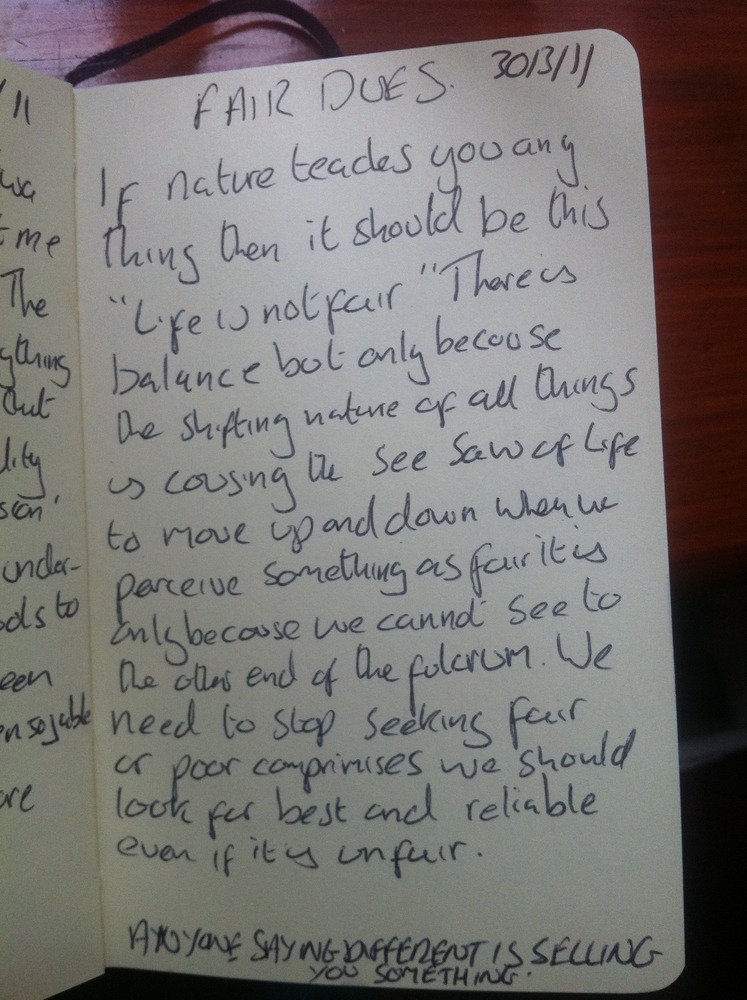 /11
wa
t me
The
ything
Out
lity
sion'
under-
ols to
een
en sojable
ore
FAIR DUES. 30/3/11
If nature teaches you any
thing then it should be this
"Life is not fair" There is
balance but only because
the shifting nature of all things
is causing the see saw of life
to move up and down when we
perceive something as fair it is
only because we cannot see to
the other end of the fulcrum. We
need to stop seeking fair
or poor comprimises we should
look for best and reliable
even if it is unfair.
ANYONE SAYING DIFFERENT IS SELLING
YOU SOMETHING.